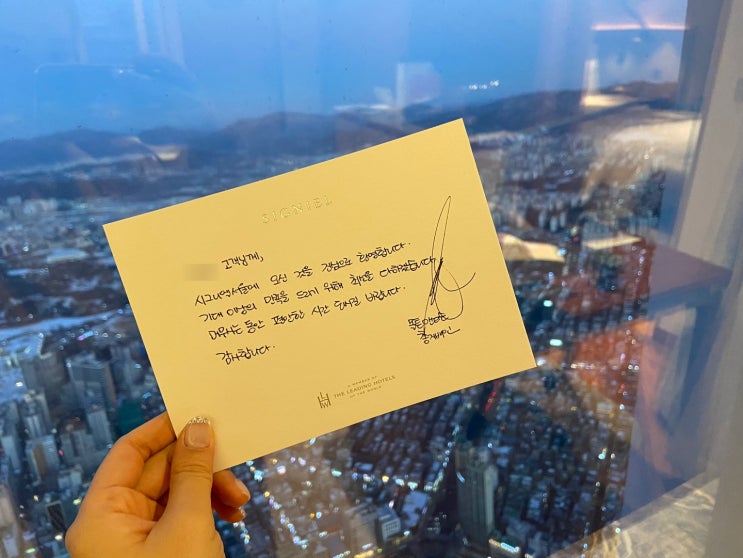 SIGNIEL
고객님께,
시그니엘서울에 오신 것을 진심으로 환영합니다.
기대 이상의 만족을 드리기 위해 최선을 다하겠습니다.
머무시는 동안 편안한 시간 되시길 바랍니다.
감사합니다.
A MEMBER OF
THE LEADING HOTELS
OF THE WORLD